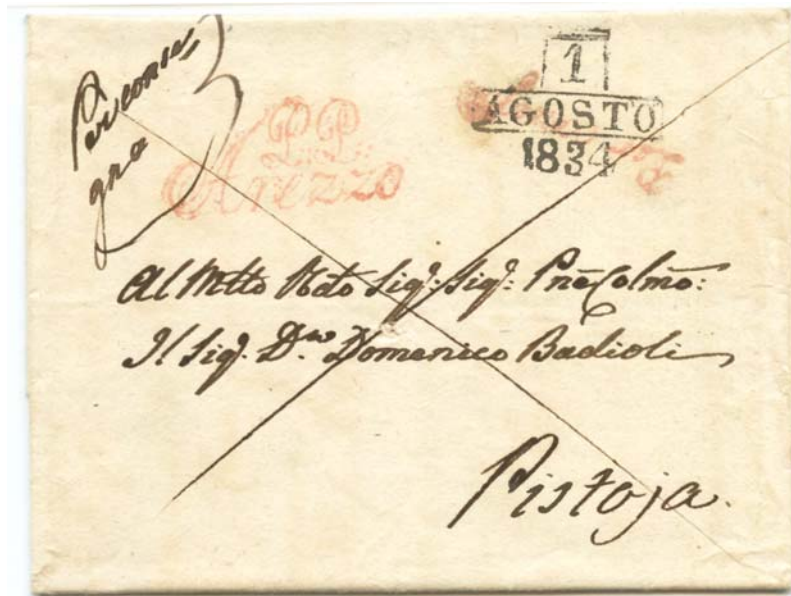 Per conse
gna
P.P.
Arezzo
1
AGOSTO
1834
Al Mtto Sig.r Sig.r Pnē Colmō:
Il Sig.r D.re Domenico Badioli
Pistoja.